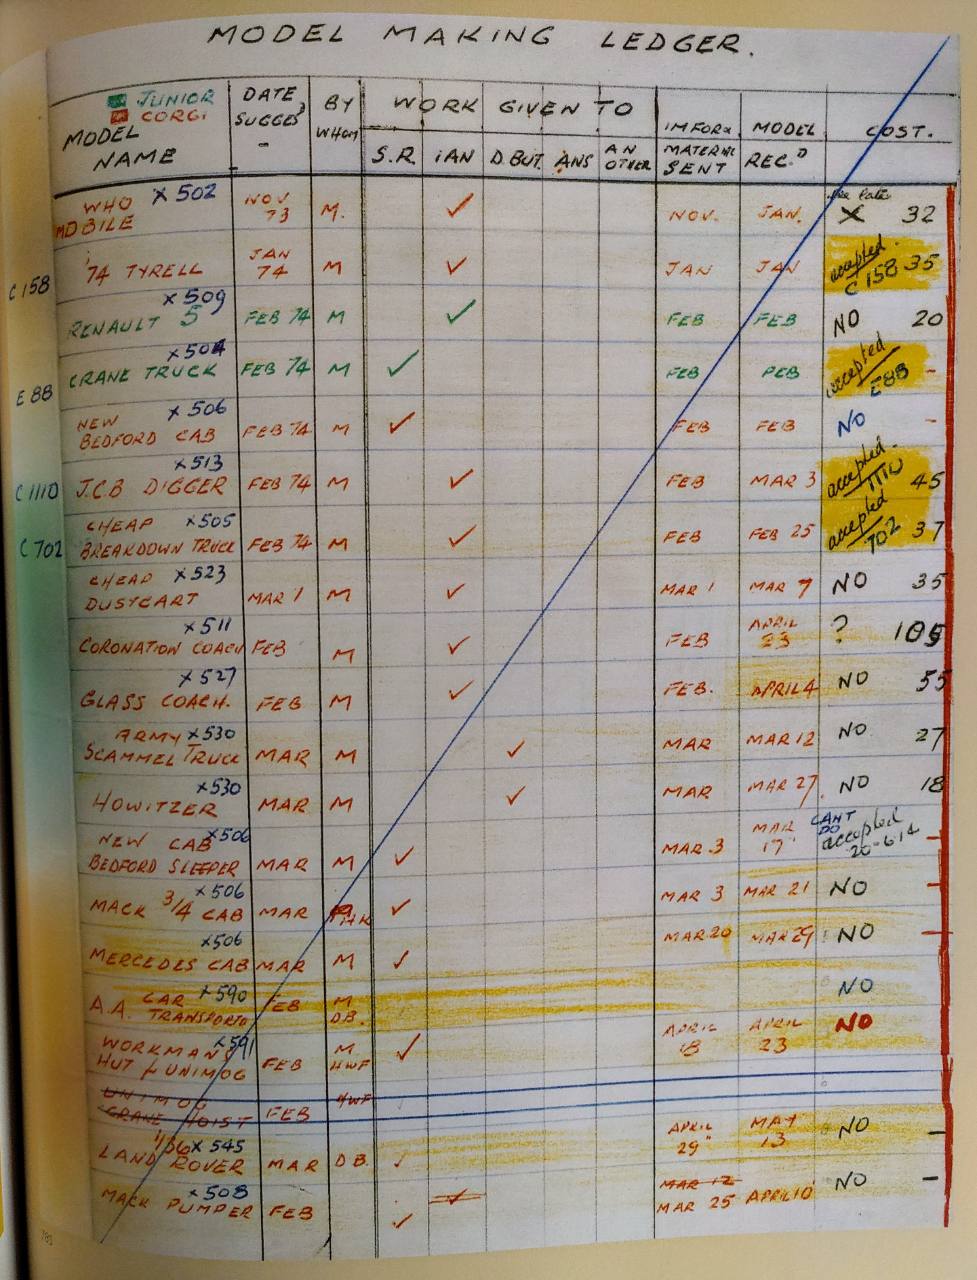 MODEL MAKING LEDGER.
JUNIOR
CORGI
MODEL NAME
DATE SUGGES
BY WHOM
WORK GIVEN TO
S.R. IAN D.BUT. ANS AN OTHER
INFOR MATERIAL SENT
MODEL REC.D
COST.
WHO MOBILE X502 NOV 73 M. ✓ NOV. JAN. See late X 32
C158 '74 TYRELL JAN 74 M ✓ JAN JAN accepted. C158 35
RENAULT 5 X509 FEB 74 M ✓ FEB FEB NO 20
E88 CRANE TRUCK X504 FEB 74 M ✓ FEB FEB accepted E88 -
NEW BEDFORD CAB X506 FEB 74 M ✓ FEB FEB NO -
C1110 J.C.B DIGGER X513 FEB 74 M ✓ FEB MAR 3 accepted. 1110 45
C702 CHEAP BREAKDOWN TRUCK X505 FEB 74 M ✓ FEB FEB 25 accepted 702 37
CHEAP DUSTCART X523 MAR 1 M ✓ MAR 1 MAR 7 NO 35
CORONATION COACH X511 FEB M ✓ FEB APRIL 23 ? 105
GLASS COACH. X527 FEB M ✓ FEB. APRIL 4 NO 55
ARMY SCAMMEL TRUCK X530 MAR M ✓ MAR MAR 12 NO 27
HOWITZER X530 MAR M ✓ MAR MAR 27. NO 18
NEW CAB BEDFORD SLEEPER X506 MAR M ✓ MAR 3 MAR 17 CANT DO accepted -
MACK 3/4 CAB X506 MAR ✓ MAR 3 MAR 21 NO -
MERCEDES CAB X506 MAR M ✓ MAR 20 MAR 29 NO -
A.A. CAR TRANSPORTO X590 FEB M DB. NO
WORKMANS HUT UNIMOG X591 FEB M HWF ✓ APRIL 18 APRIL 23 NO
UNIMOG CRANE HOIST FEB HWF ✓
1/36 LAND ROVER X545 MAR DB. ✓ APRIL 29" MAY 13 NO -
MACK PUMPER X508 FEB ✓ ✓ MAR 12 MAR 25 APRIL 10 NO -